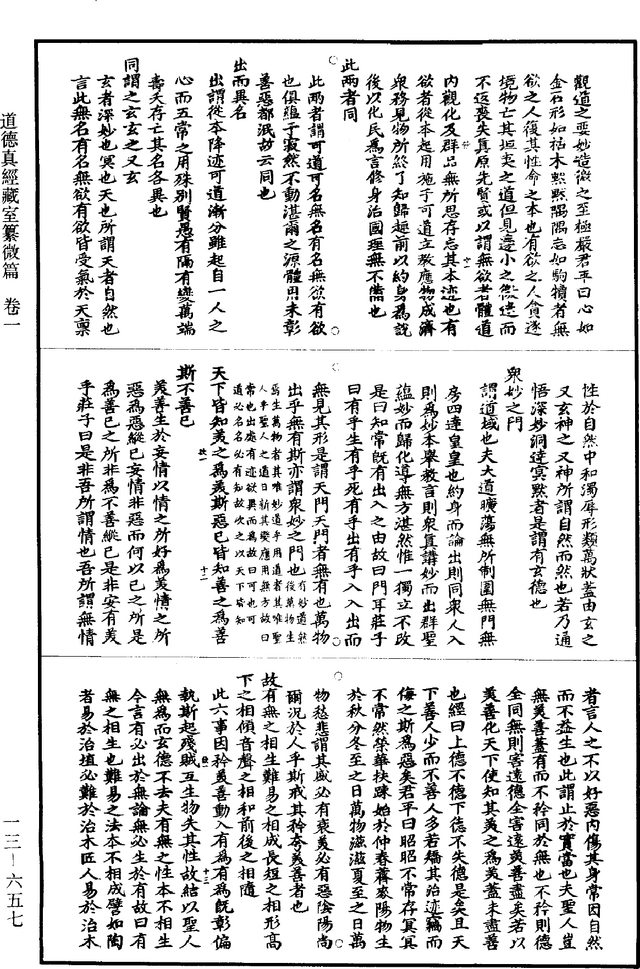 道德真經藏室纂微篇　卷一
觀道之要妙造微之至極嚴君平曰心如
金石形如枯木默默隅隅忘如駒犢者無
欲之人復其性命之本也有欲之人貪逐
境物亡其坦夷之道但見邊小之徼迷而
不返喪失真原先賢或以謂無欲者體道
內觀化及群品無所思存忘其本迹也有
欲者從本起用施于可道立教應物成濟
眾務見物所終了知歸趣前以約身為說
後以化民為言修身治國理無不備也
此兩者同
此兩者謂可道可名無名有名無欲有欲
也俱蘊于寂然不動湛爾之源體用未彰
善惡都泯故云同也
出而異名
出謂從本降迹可道漸分雖起自一人之
心而五常之用殊別賢愚有隔有變萬端
壽夭存亡其名各異也
同謂之玄玄之又玄
玄者深妙也冥也天也所謂天者自然也
言此無名有名無欲有欲皆受氣於天稟
性於自然中和濁辱形類萬狀蓋由玄之
又玄神之又神所謂自然而然也若乃通
悟深妙洞達冥默者是謂有玄德也
眾妙之門
謂道域也夫大道曠蕩無所制圍無門無
房四達皇皇也約身而論出則同眾人入
則為妙本舉教言則眾真講妙而出群聖
蘊妙而歸化導無方湛然惟一獨立不改
是曰知常既有出入之由故曰門耳莊子
曰有乎生有乎死有乎出有乎入入出而
無見其形是謂天門天門者無有也萬物
出乎無有斯亦謂眾妙之門也
天下皆知美之為美斯惡已皆知善之為善
斯不善已
美善生於妄情以情之所好為美情之所
惡為惡縱已妄情非惡而何以已之所是
為善已之所非為不善縱已是非安有美
乎莊子曰是非吾所謂情也吾所謂無情
者言人之不以好惡內傷其身常因自然
而不益生也此謂止於實當也夫聖人豈
無美善蓋有而不矜同於無也不矜則德
全同無則害遠德全害遠美善盡矣若以
美善化天下使知其美之為美蓋未盡善
也經曰上德不德下德不失德是矣且天
下善人少而不善人多若矯其治迹竊而
侮之斯為惡矣君平曰昭昭不常存冥冥
不常然榮華扶疎始於仲春薺麥陽物生
於秋分冬至之日萬物滋滋夏至之日萬
物愁悲謂其盛必有衰美必有惡陰陽尚
爾況於人乎斯戒其矜夸美善者也
故有無之相生難易之相成長短之相形高
下之相傾音聲之相和前後之相隨
此六事因矜美善動入有為有為既彰偏
執斯起殘賊互生物失其性故結以聖人
無為而玄德不去夫有無之性本不相生
今言有必出於無論無必生於有故曰有
無之相生也難易之法本不相成譬如陶
者易於治埴必難於治木匠人易於治木
一三－六五七